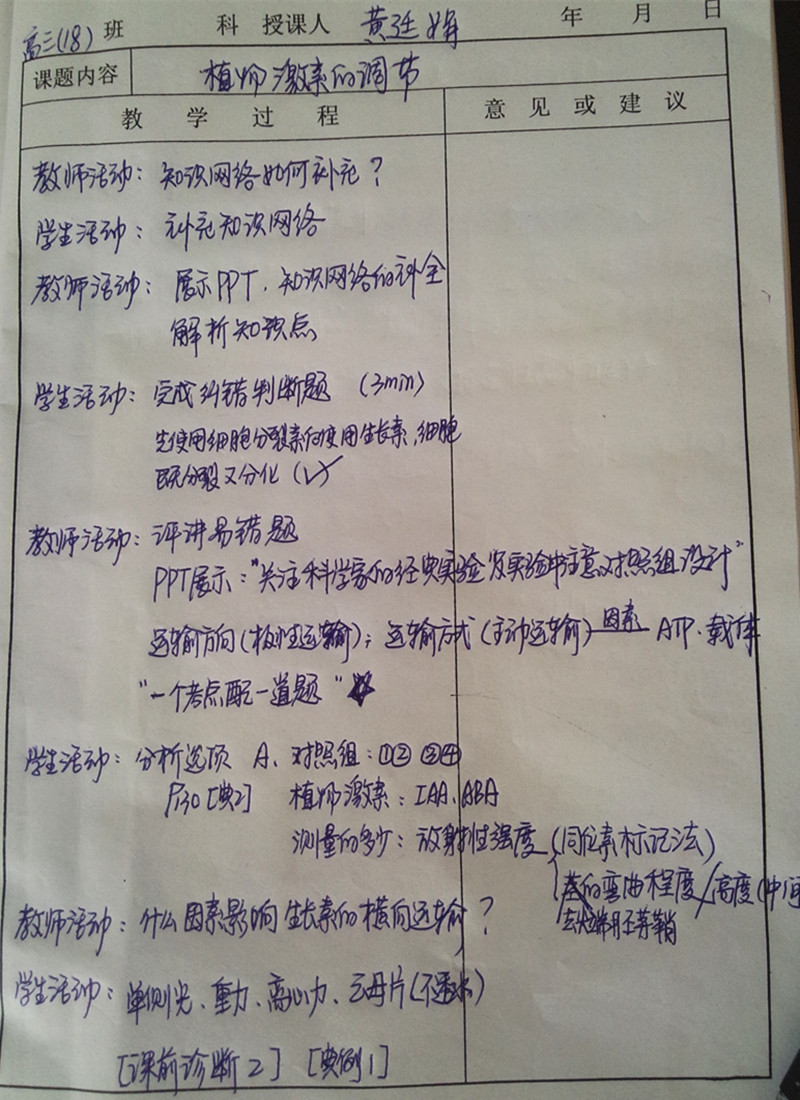 高三(18) 班 科 授课人 黄廷娟 年 月 日
课题内容 植物激素的调节
教学过程 意见或建议
教师活动：知识网络如何补充？
学生活动：补充知识网络
教师活动：展示PPT、知识网络的补全
解析知识点
学生活动：完成纠错判断题 (3min)
先使用细胞分裂素后使用生长素，细胞
既分裂又分化 (√)
教师活动：评讲易错题
PPT展示："关注科学家的经典实验及实验中注意对照组设计"
运输方向(极性运输)；运输方式(主动运输) 因素 ATP、载体
"一个考点配一道题"
学生活动：分析选项 A、对照组：①② ③④
P130[典2] 植物激素：IAA、ABA
测量的多少：放射性强度 (同位素标记法)
茎的弯曲程度/高度(中间
去尖端胚芽鞘
教师活动：什么因素影响生长素的横向运输？
学生活动：单侧光、重力、离心力、云母片(不透水)
[课前诊断2] [典例1]